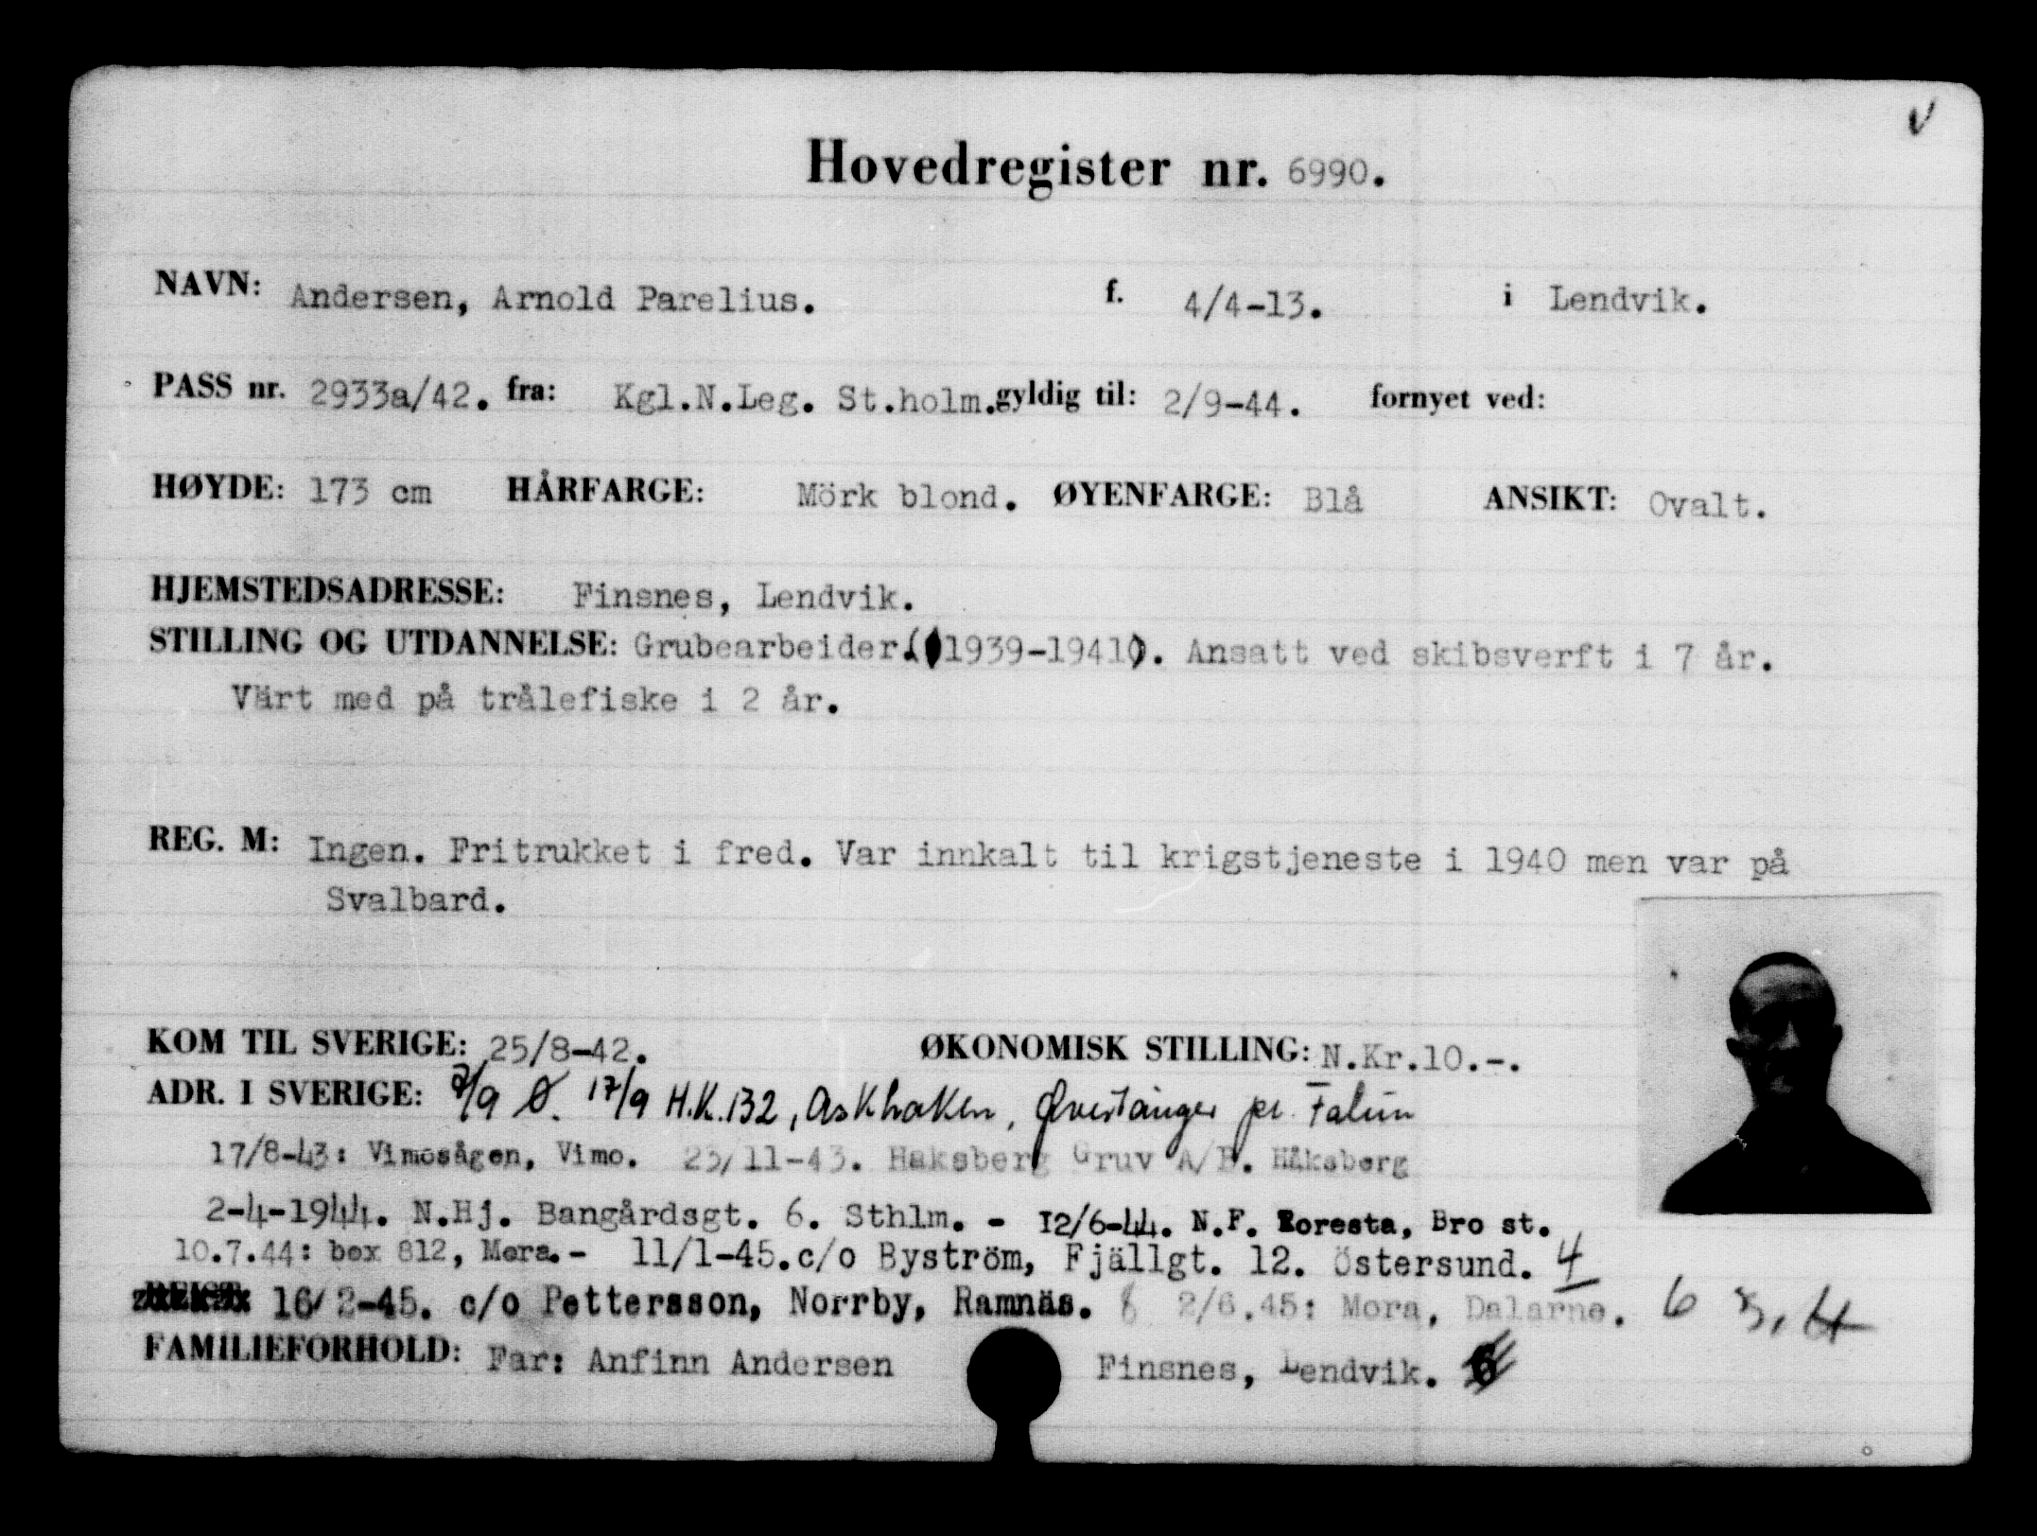 V
Hovedregister nr. 6990.
NAVN: Andersen, Arnold Parelius. f. 4/4-13. i Lendvik.
PASS nr. 2933a/42. fra: Kgl.N.Leg. St.holm. gyldig til: 2/9-44. fornyet ved:
HØYDE: 173 cm HÅRFARGE: Mörk blond. ØYENFARGE: Blå ANSIKT: Ovalt.
HJEMSTEDSADRESSE: Finsnes, Lendvik.
STILLING OG UTDANNELSE: Grubearbeider.(1939-1941). Ansatt ved skibsverft i 7 år.
Värt med på trålefiske i 2 år.
REG. M: Ingen. Fritrukket i fred. Var innkalt til krigstjeneste i 1940 men var på
Svalbard.
KOM TIL SVERIGE: 25/8-42. ØKONOMISK STILLING: N.Kr.10.-.
ADR. I SVERIGE: 7/9 Ø. 17/9 H.K.132, Askhaken, Øvertänger pr. Falun
17/8-43: Vimosågen, Vimo. 23/11-43. Haksberg Gruv A/B. Håksberg
2-4-1944. N.Hj. Bangårdsgt. 6. Sthlm. - 12/6-44. N.F. Toresta, Bro st.
10.7.44: box 812, Mora.- 11/1-45. c/o Byström, Fjällgt. 12. Östersund. 4
16/2-45. c/o Pettersson, Norrby, Ramnäs. 2/6.45: Mora, Dalarne. 6 3,4
FAMILIEFORHOLD: Far: Anfinn Andersen Finsnes, Lendvik. 6